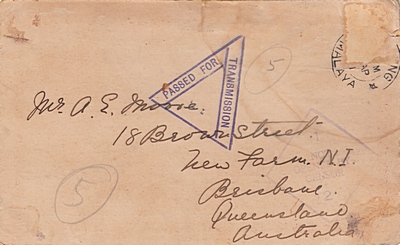 PASSED FOR TRANSMISSION
5
MALAYA
Mr. A. E. Moore.
18 Brown Street.
New Farm. N.1.
Brisbane.
Queensland.
Australia
5